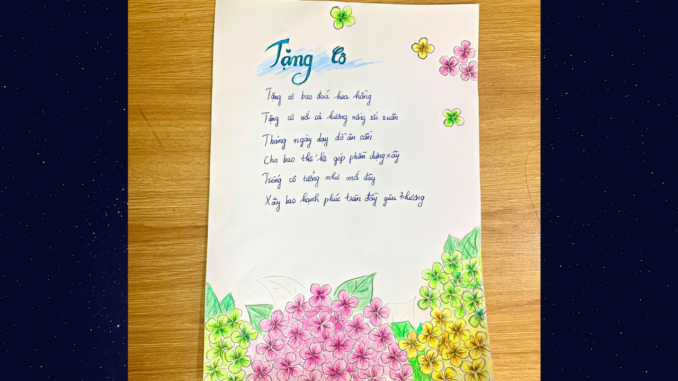 Tặng Cô
Tặng cô bao đoá hoa hồng
Tặng cô nơi cả hương nồng sắc xuân
Tháng ngày dạy dỗ ân cần
Cho bao thế hệ góp phần dựng xây
Trông cô tưởng như mới đây
Xây bao hạnh phúc tràn đầy yêu thương